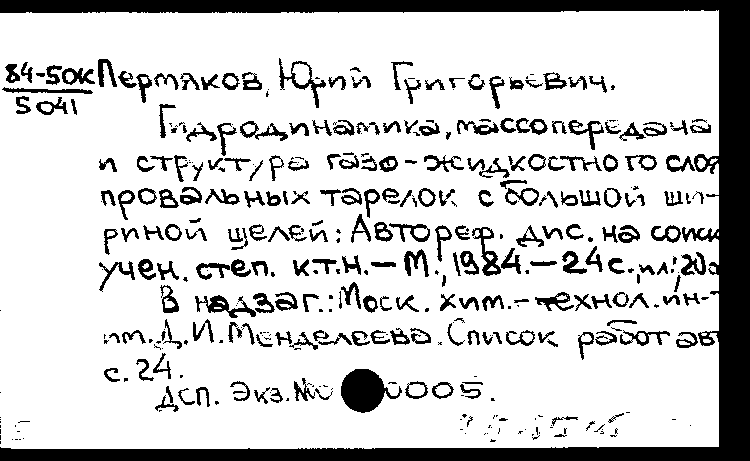 84-50К Пермяков, Юрий Григорьевич.
5041
Гидродинамика, массопередача
и структура газо-жидкостного слоя
провальных тарелок с большой ши-
риной щелей: Автореф. дис. на соиск
учен. степ. к.т.н. — М., 1984. — 24 с., ил.; 20
В надзаг.: Моск. хим.-технол. ин-т
им. Д.И. Менделеева. Список работ авт
с. 24.
ДСП. Экз. № 0005.